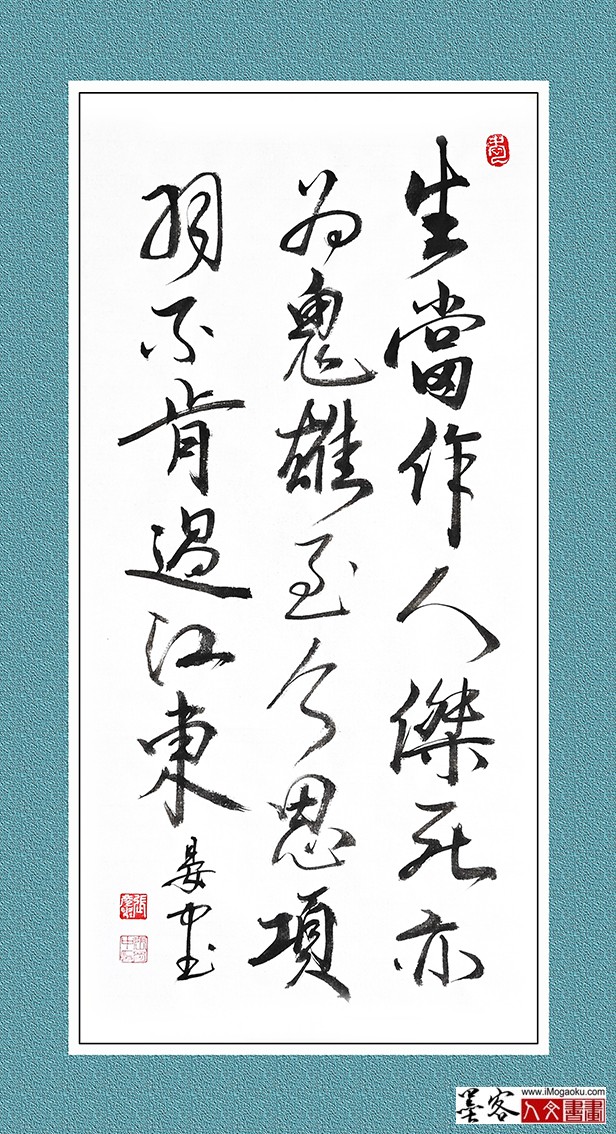 生當作人傑死亦
为鬼雄至今思項
羽不肯過江東
晏中书
www.iMogaoku.com
墨客
人文書畫